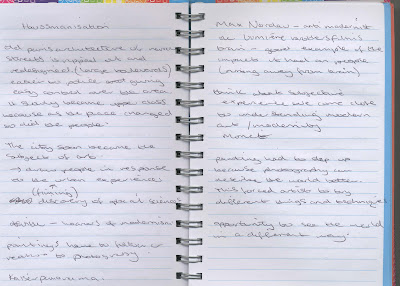 Haussmanisation
old paris architecture of narrow
streets is ripped out and
redesigned (large boulevards)
easier to police
easy control over the area.
it slowly became upper class
because as the place changed
so did the people.
The city soon became the
subject of art.
→ draw people in response
to the urban experience
(framing)
discovery of
– heroes of modernism
paintings have to
to photography
Kaiserpanorama.
Max Nordau – anti modernist
lumière brothers films
train – good example of the
impacts it had on people
(running away from train)
think about subjective
experience we come close
to understanding modern
art/modernity
Monet
painting had to step up
because photography can
describe the world better.
This forced artists to try
different things and techniques
opportunity to see the world
in a different way.